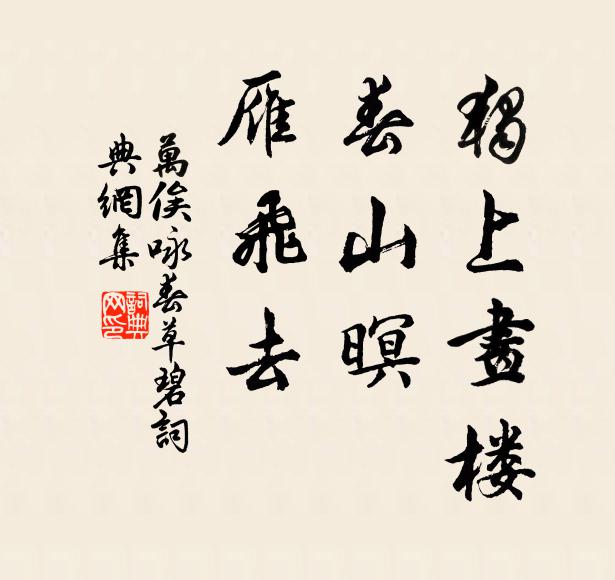 獨上畫楼
春山暝
雁飛去
萬俟咏春草碧詞
典網集
詞典
网印